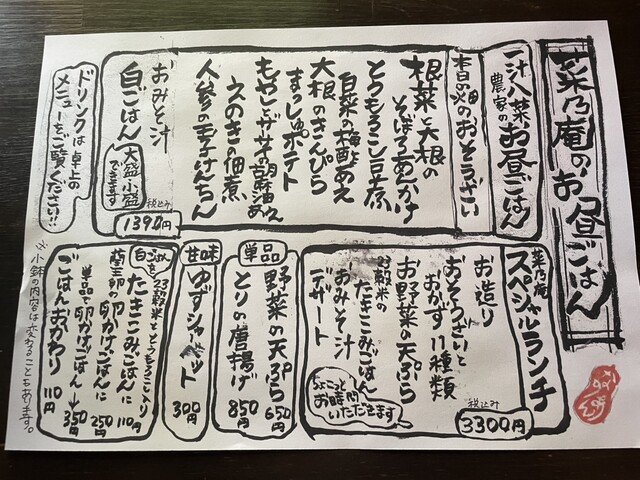 菜乃庵のお昼ごはん
一汁八菜
農家のお昼ごはん
本日の畑のおそうざい
根菜と大根の
そぼろあんかけ
とうもろこし豆腐
白菜の梅酢あえ
大根のきんぴら
まっしゅポテト
もやしとザーサイの胡麻油あえ
えのきの佃煮
人参の玉子けんちん
おみそ汁
白ごはん
大盛小盛
できます
税込み
1390円
ドリンクは卓上の
メニューをご覧ください!!
菜乃庵
スペシャルランチ
お造り
おそうざいと
おかず11種類
お野菜の天ぷら
23穀米の
たきこみごはん
おみそ汁
デザート
ちょこっと
お時間
いただきます
税込み
3300円
単品
野菜の天ぷら 650円
とりの唐揚げ 850円
甘味
ゆずシャーベット 300円
白ごはんを
23穀米ととうもろこし入り
たきこみごはんに 110円
蘭王卵の卵かけごはんに 250円
単品で卵かけごはん→350円
ごはんおかわり 110円
※小鉢の内容は変わることもあります。